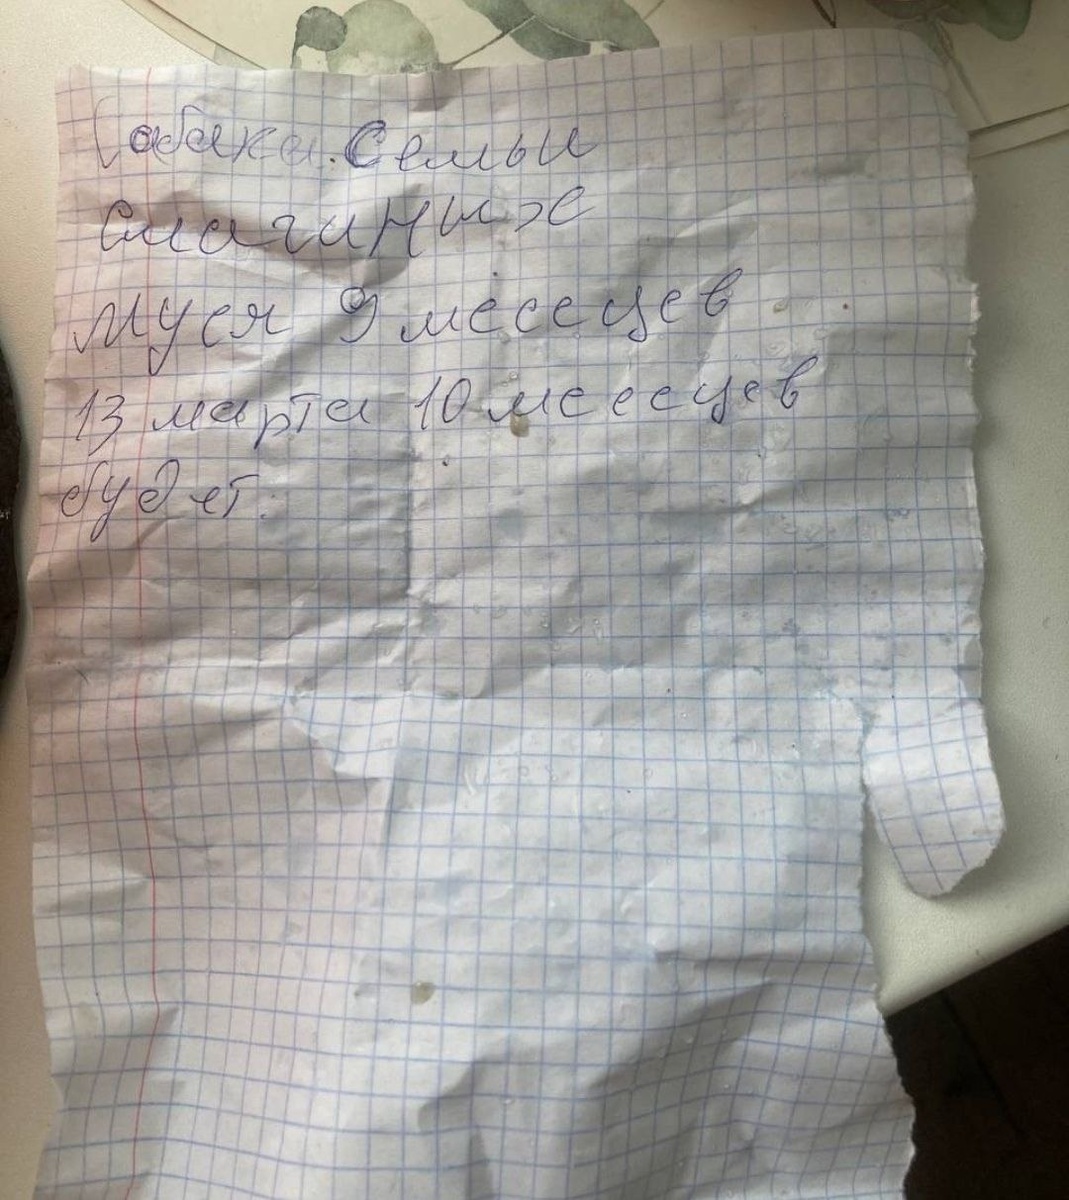 Собака. Семьи
Смагиных
Муся 9 месецев
13 марта 10 месецев
будет.